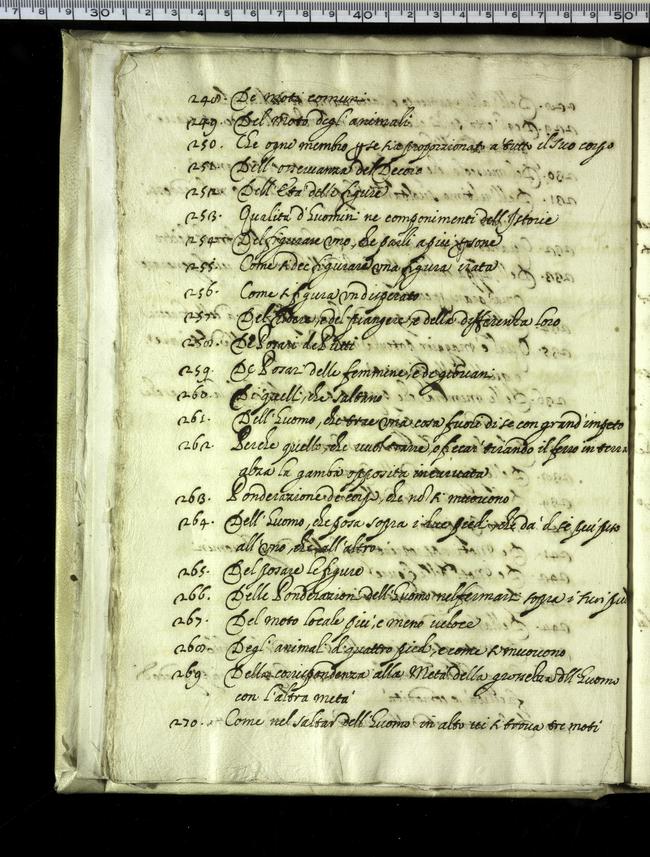 248. De moti comuni
249. Del moto degl'animali
250. Che ogni membro p se sia proporzionato a' tutto il suo corpo
251. Dell'osservanza del Decoro
252. Dell'Età delle figure
253. Qualità d'huomini ne componimenti dell'Istorie
254. Del figurare uno, che parli a più psone
255. Come si dee figurare una figura irata
256. Come si figura un disperato
257. Del Ridere, e del piangere, e della differenza loro
258. De Posari de Putti
259. De Posar delle femmine, e de giovani
260. Di quelli, che saltano
261. Dell'huomo, che trae una cosa fuori di se con grand'impeto
262. Perche quello, che vuol tirare, o ficcar' tirando il ferro in terra
alza la gamba opposita incurvata
263. Ponderazione de corpi, che nõ si muovono
264. Dell'huomo, che posa sopra i due piedi, che dà di se più pso
all'uno, che all'altro
265. Del posare le figure
266. Delle Ponderazioni dell'huomo nel fermarsi sopra i suoi pied
267. Del moto locale più, e meno veloce
268. Degl'animali di quattro piedi, e come si muovono
269. Della corrispondenza alla Metà della grossezza dell'huomo
con l'altra metà
270. Come nel saltar dell'huomo in alto vi si trova tre moti